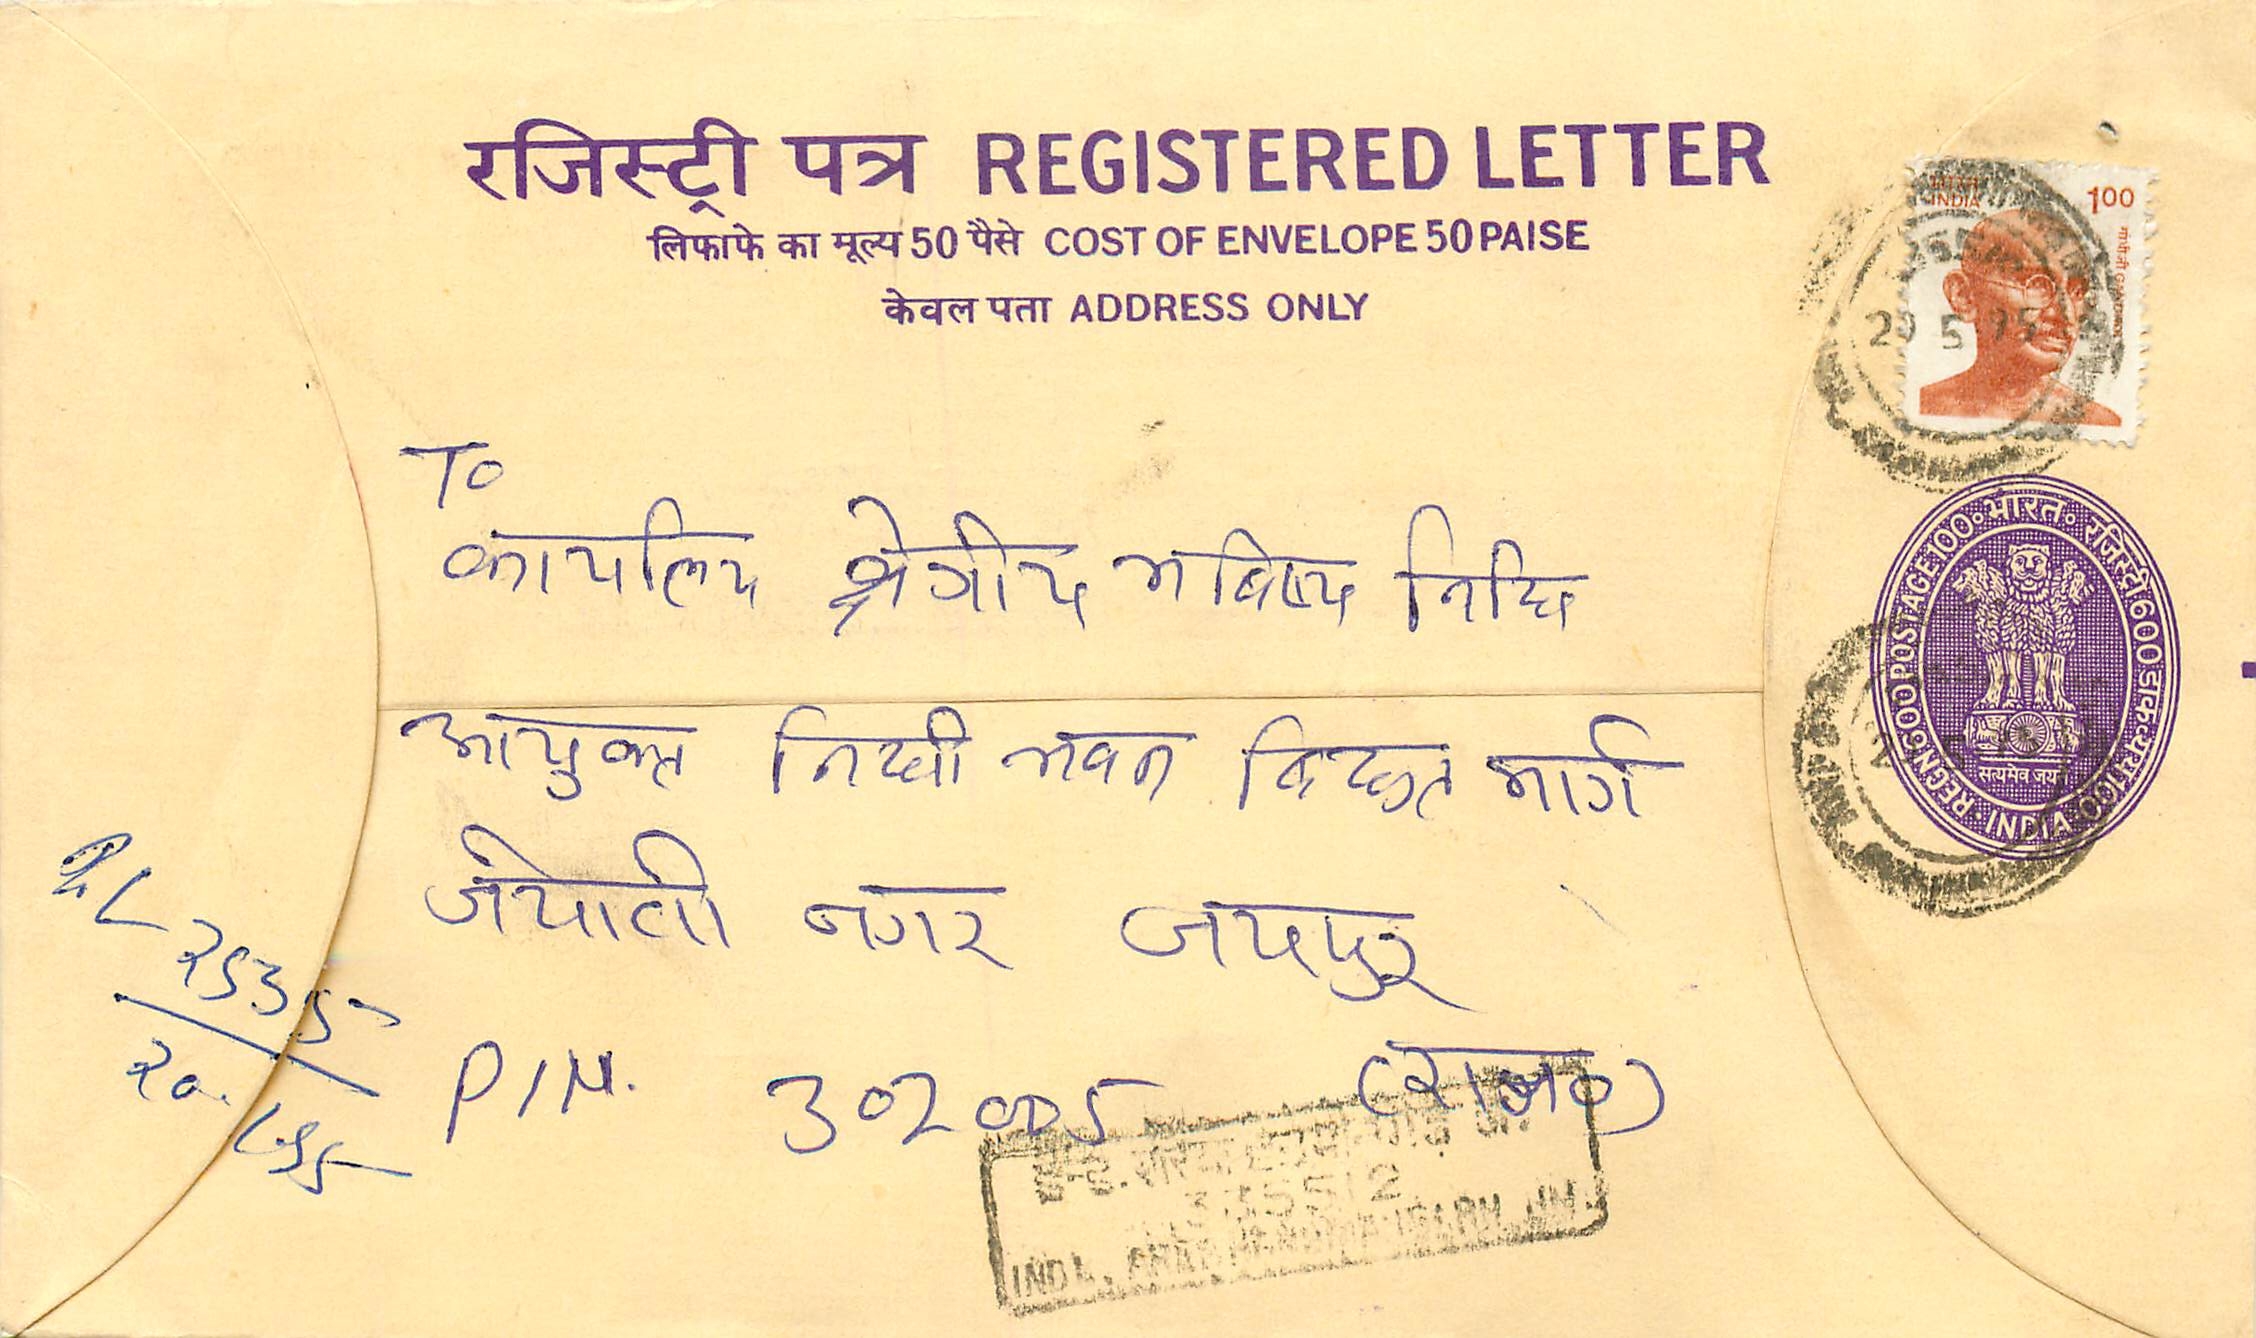 रजिस्ट्री पत्र REGISTERED LETTER
लिफाफे का मूल्य 50 पैसे COST OF ENVELOPE 50 PAISE
केवल पता ADDRESS ONLY
भारत
INDIA
100
गांधीजी GANDHIJI
20 5 95
भारत रजिस्ट्री 600 डाक-व्यय 100 INDIA REGN 600 POSTAGE 100
सत्यमेव जयते
To
कार्यालय क्षेत्रीय भविष्य निधि
आयुक्त निधी भवन विद्युत मार्ग
ज्योती नगर जयपुर
PIN. 302005 (राज०)
335512